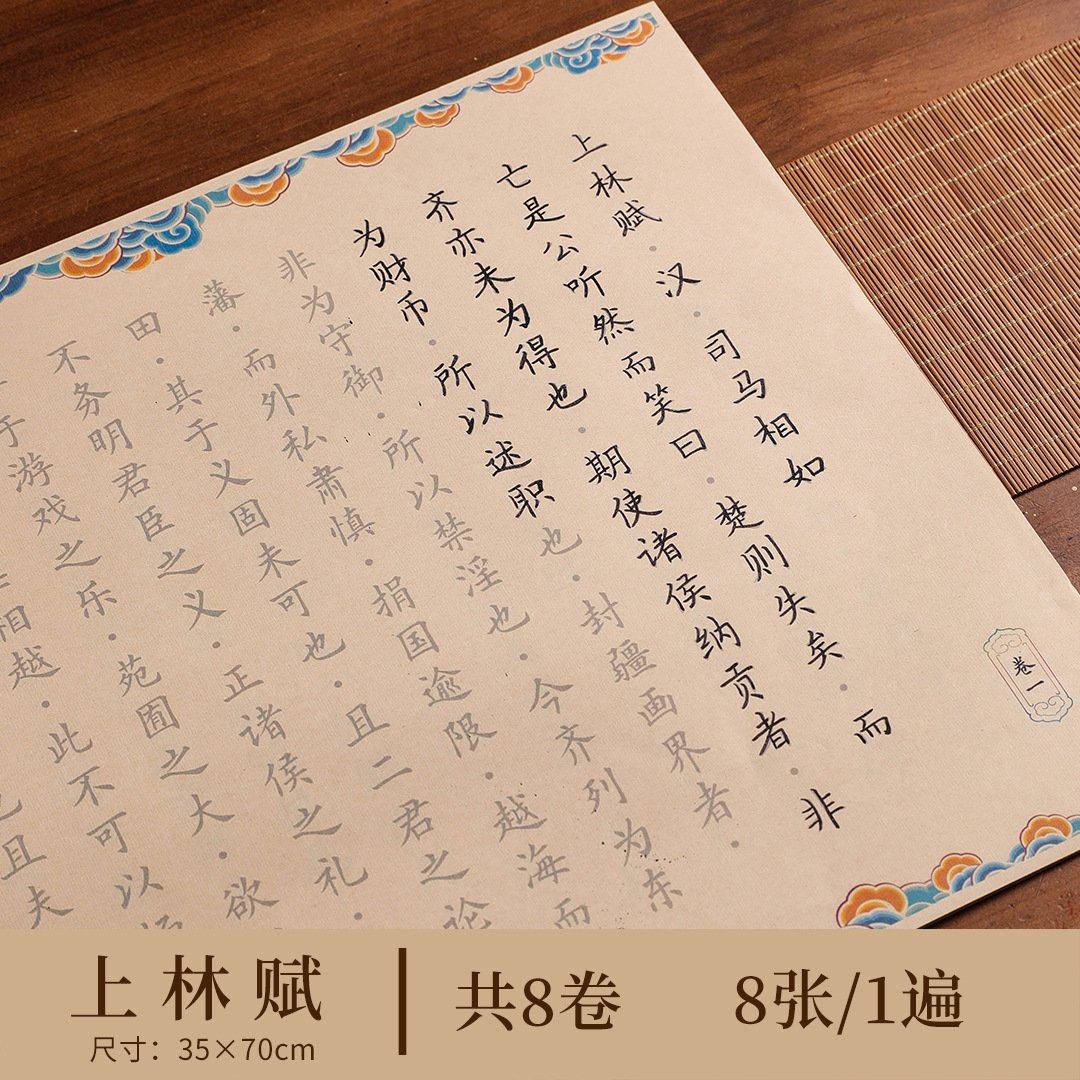 上林赋·汉·司马相如
亡是公听然而笑曰·楚则失矣·而
齐亦未为得也·期使诸侯纳贡者·非
为财币·所以述职也·封疆画界者·
非为守御·所以禁淫也·今齐列为东
藩·而外私肃慎·捐国逾限·越海而
田·其于义固未可也·且二君之论
不务明君臣之义·正诸侯之礼·
于游戏之乐·苑囿之大·欲
相越·此不可以
且夫
卷一
上林赋
尺寸：35×70cm
共8卷
8张/1遍